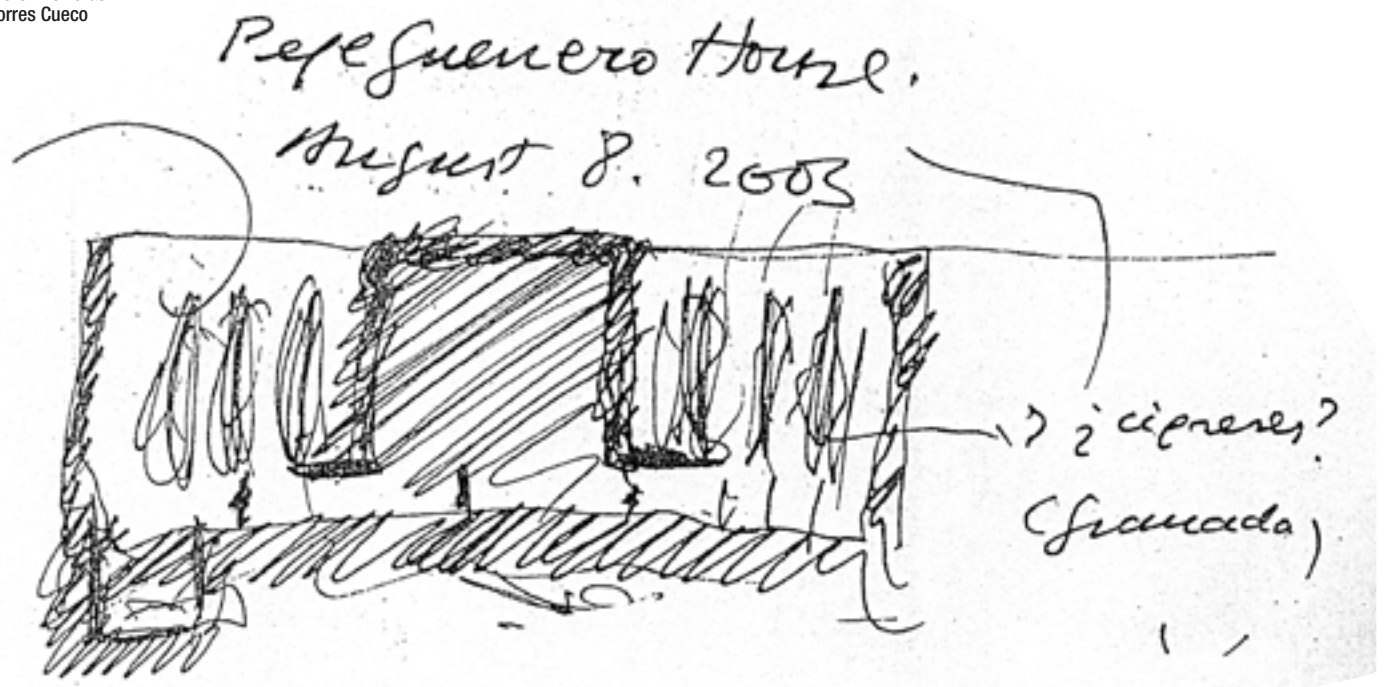 orres Cueco
Pepe Guerrero House.
August 8. 2003
¿cipreses?
(Granada)